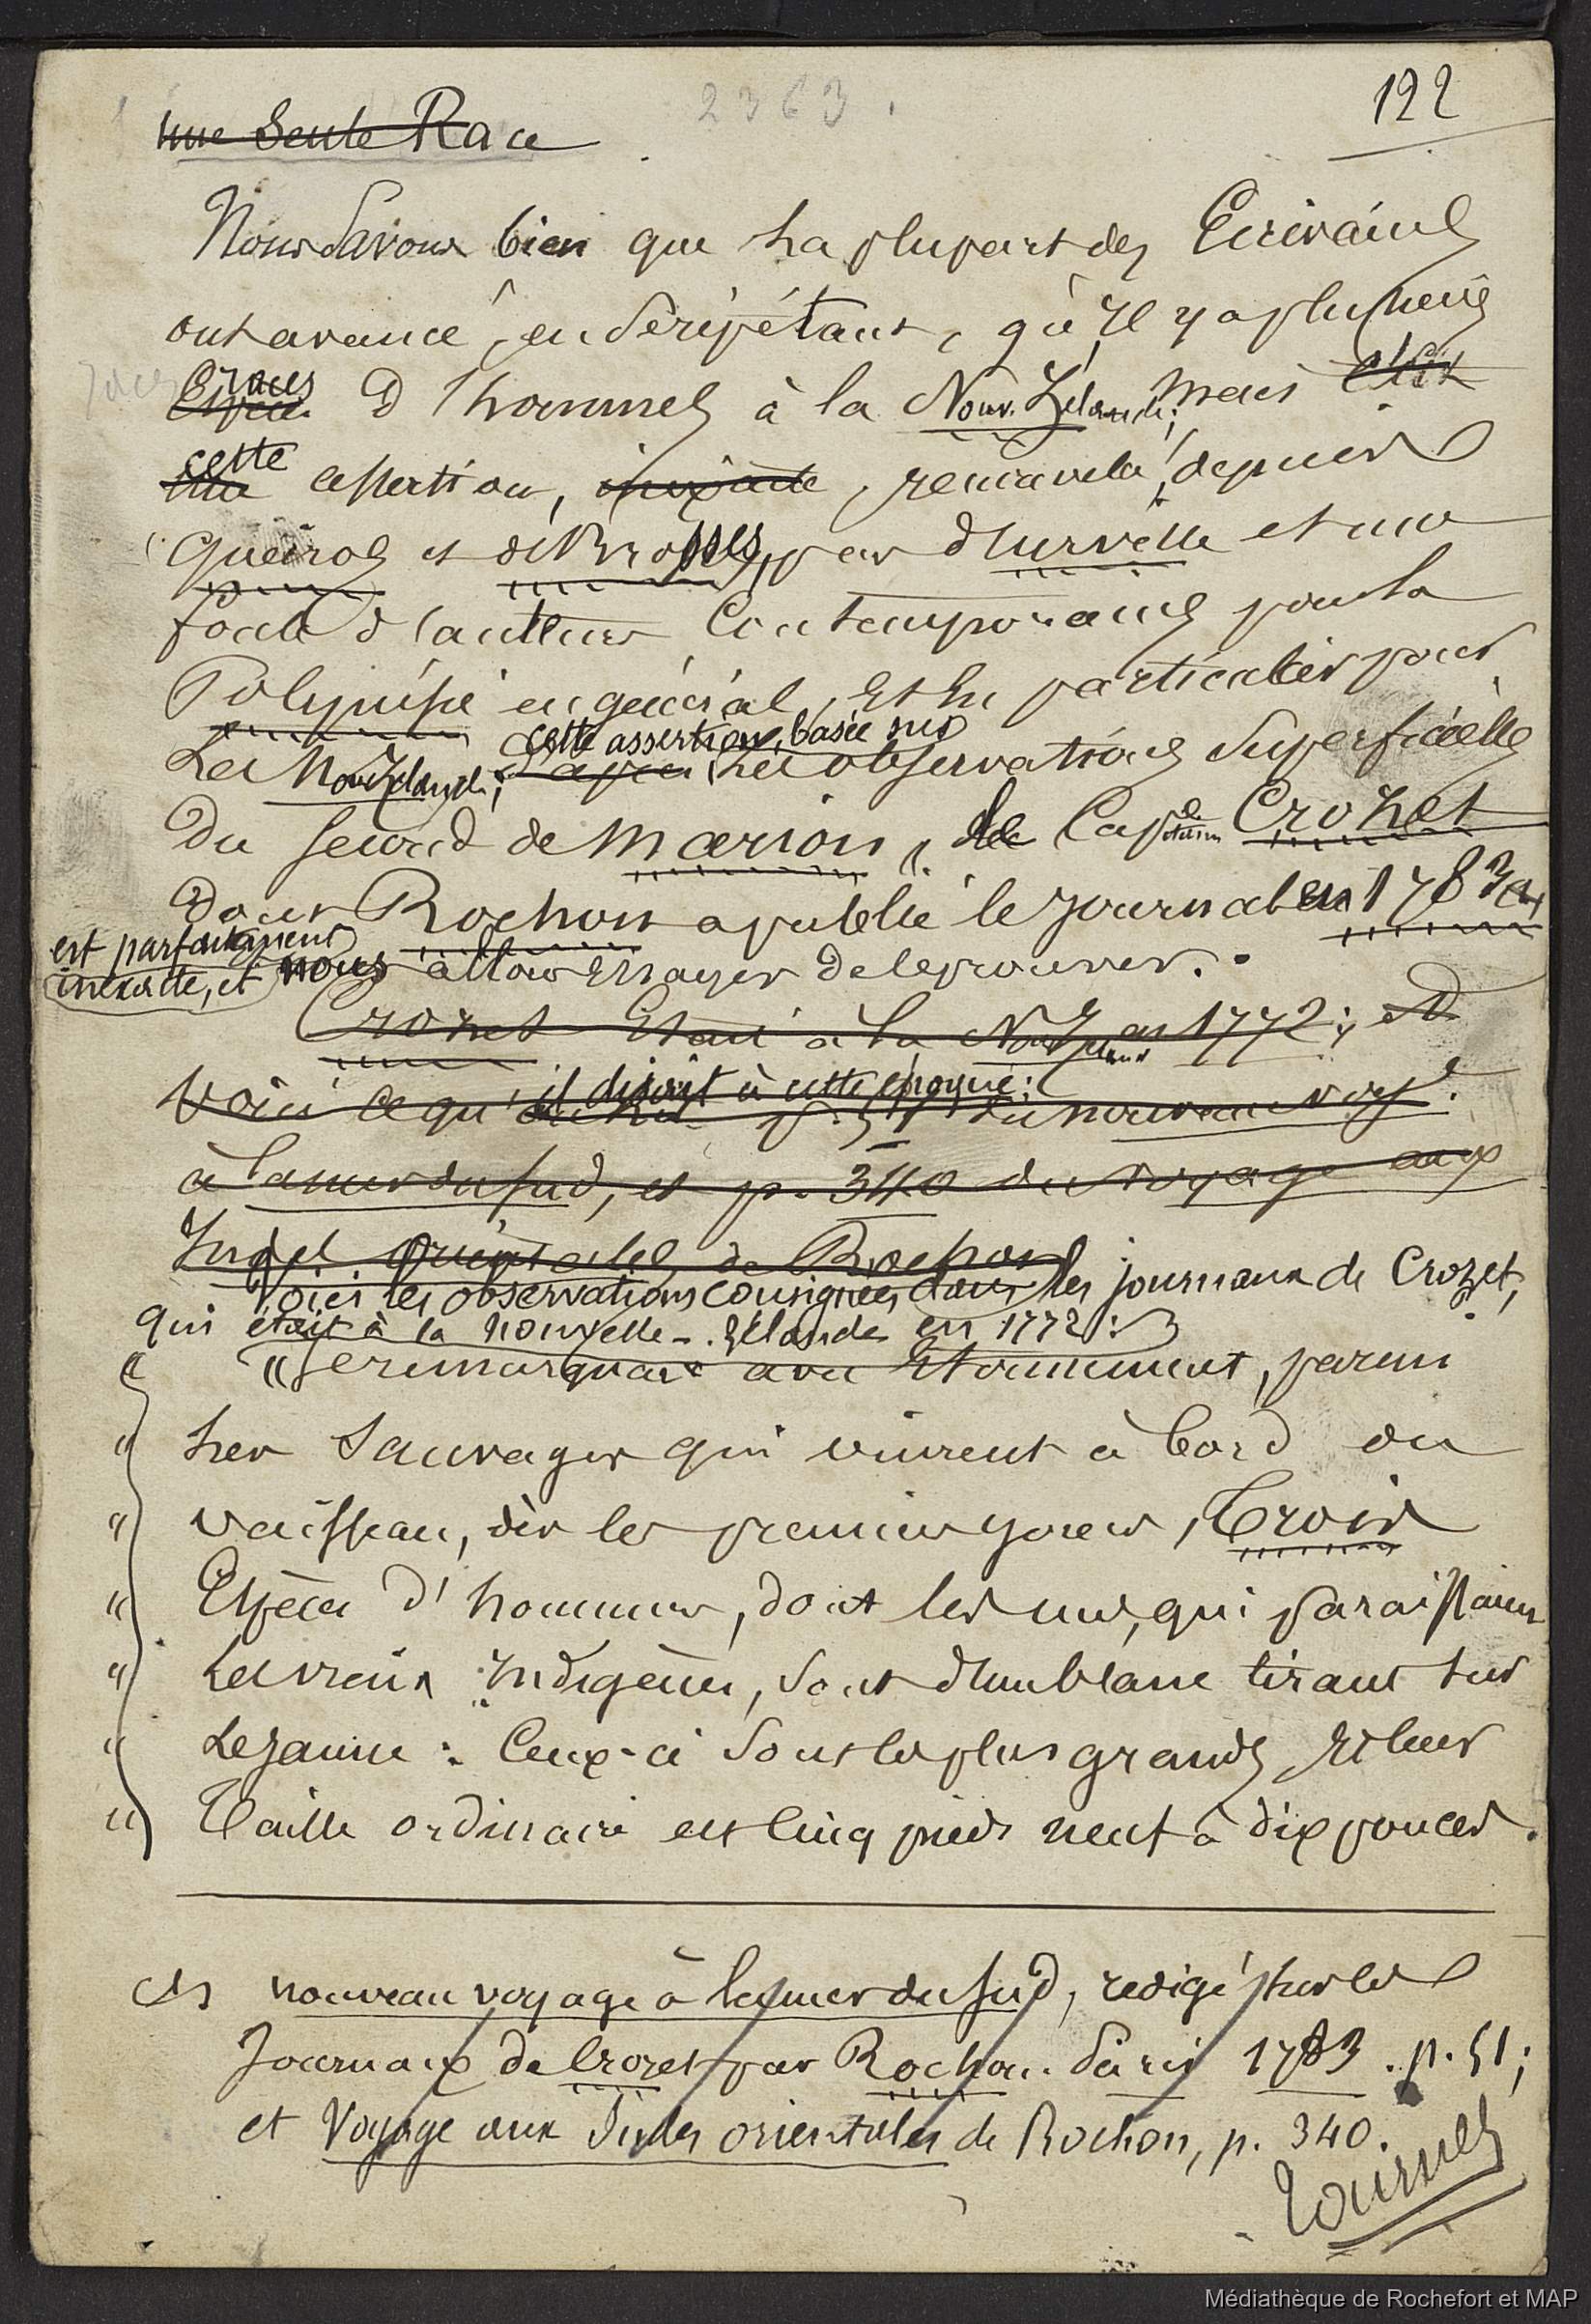 2363.
122
une Seule Race
Nous Savons bien que la plupart des Ecrivains
ont avancé, en Se répétant, qu'Il y a plusieurs
races
Espèces d'hommes à la Nouv. Zélande; mais
cette
assertion, inexacte, renouvelée, depuis
Queiros et de Brosses, par d'Urville et une
foule d'auteurs Contemporains pour la
Polynésie en général, Et En particulier pour
cette assertion, basée sur
La Nouv Zélande; d'après Les observations Superficielles
Du Second de Marion, le Capitaine Crozet
dont Rochon a publié le Journal en 1783 (1)
est parfaitement
inexacte, et nous allons Essayer de le prouver.
Crozet Etait à la Nouv Zélande en 1772; et
il disait à cette époque:
Voici ce qu' p. 51 du nouveau voye.
à la mer du Sud, et p. 340 du Voyage aux
Indes Orientales de Rochon
Voici les observations consignées dans les journaux de Crozet,
qui était à la nouvelle-Zélande en 1772:
" "Je remarquai avec Etonnement, parmi
" Les Sauvages qui vinrent à bord du
" vaisseau, dès les premiers jours, Trois
" Espèces d'hommes, dont les uns, qui paraissaient
" Les vrais Indigènes, Sont d'un blanc tirant Sur
" Le Jaune: Ceux-ci Sont les plus grands, Et leur
" Taille ordinaire est Cinq pieds neuf à dix pouces.
(1) nouveau voyage à la mer du Sud, redigé Sur les
Journaux de Crozet par Rochon. Paris 1783. p. 51;
et Voyage aux Indes orientales de Rochon, p. 340.
Tournez